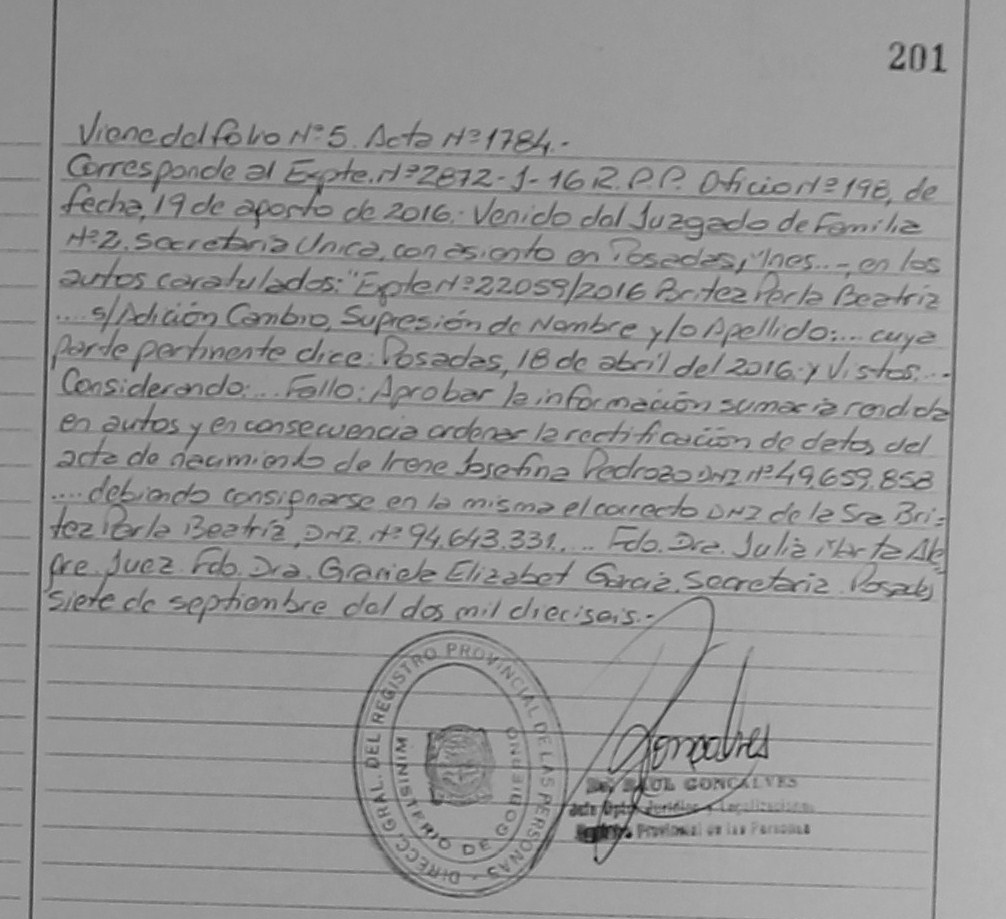 201
Viene del folio Nº 5. Acta Nº 1784.-
Corresponde al Expte. Nº 2872-J-16 R.P.P. Oficio Nº 198, de
fecha, 19 de agosto de 2016. Venido del Juzgado de Familia
Nº 2. Secretaria Unica, con asiento en Posadas, Mnes...-, en los
autos caratulados: "Expte Nº 22059/2016 Britez Perla Beatriz
.... s/Adición Cambio, Supresión de Nombre y/o Apellido:... cuya
parte pertinente dice: Posadas, 18 de abril del 2016. y Vistos:...
Considerando:... Fallo: Aprobar la información sumaria rendida
en autos y en consecuencia ordenar la rectificación de datos del
acta de nacimiento de Irene Josefina Pedrozo DNI Nº 49.659.858
.... debiendo consignarse en la misma el correcto DNI de la Sra Bri-
tez Perla Beatriz, DNI. Nº 94.643.331.... Fdo. Dra. Julia Marta Ale
gre. Juez. Fdo. Dra. Graciela Elizabet Garcia. Secretaria. Posadas
siete de septiembre del dos mil dieciseis.-
DIRECC. GRAL. DEL REGISTRO PROVINCIAL DE LAS PERSONAS
MINISTERIO DE GOBIERNO
Goncalves
RAUL GONCALVES
Jefe Dpto. Jurídico y Legalizaciones
Registro Provincial de las Personas